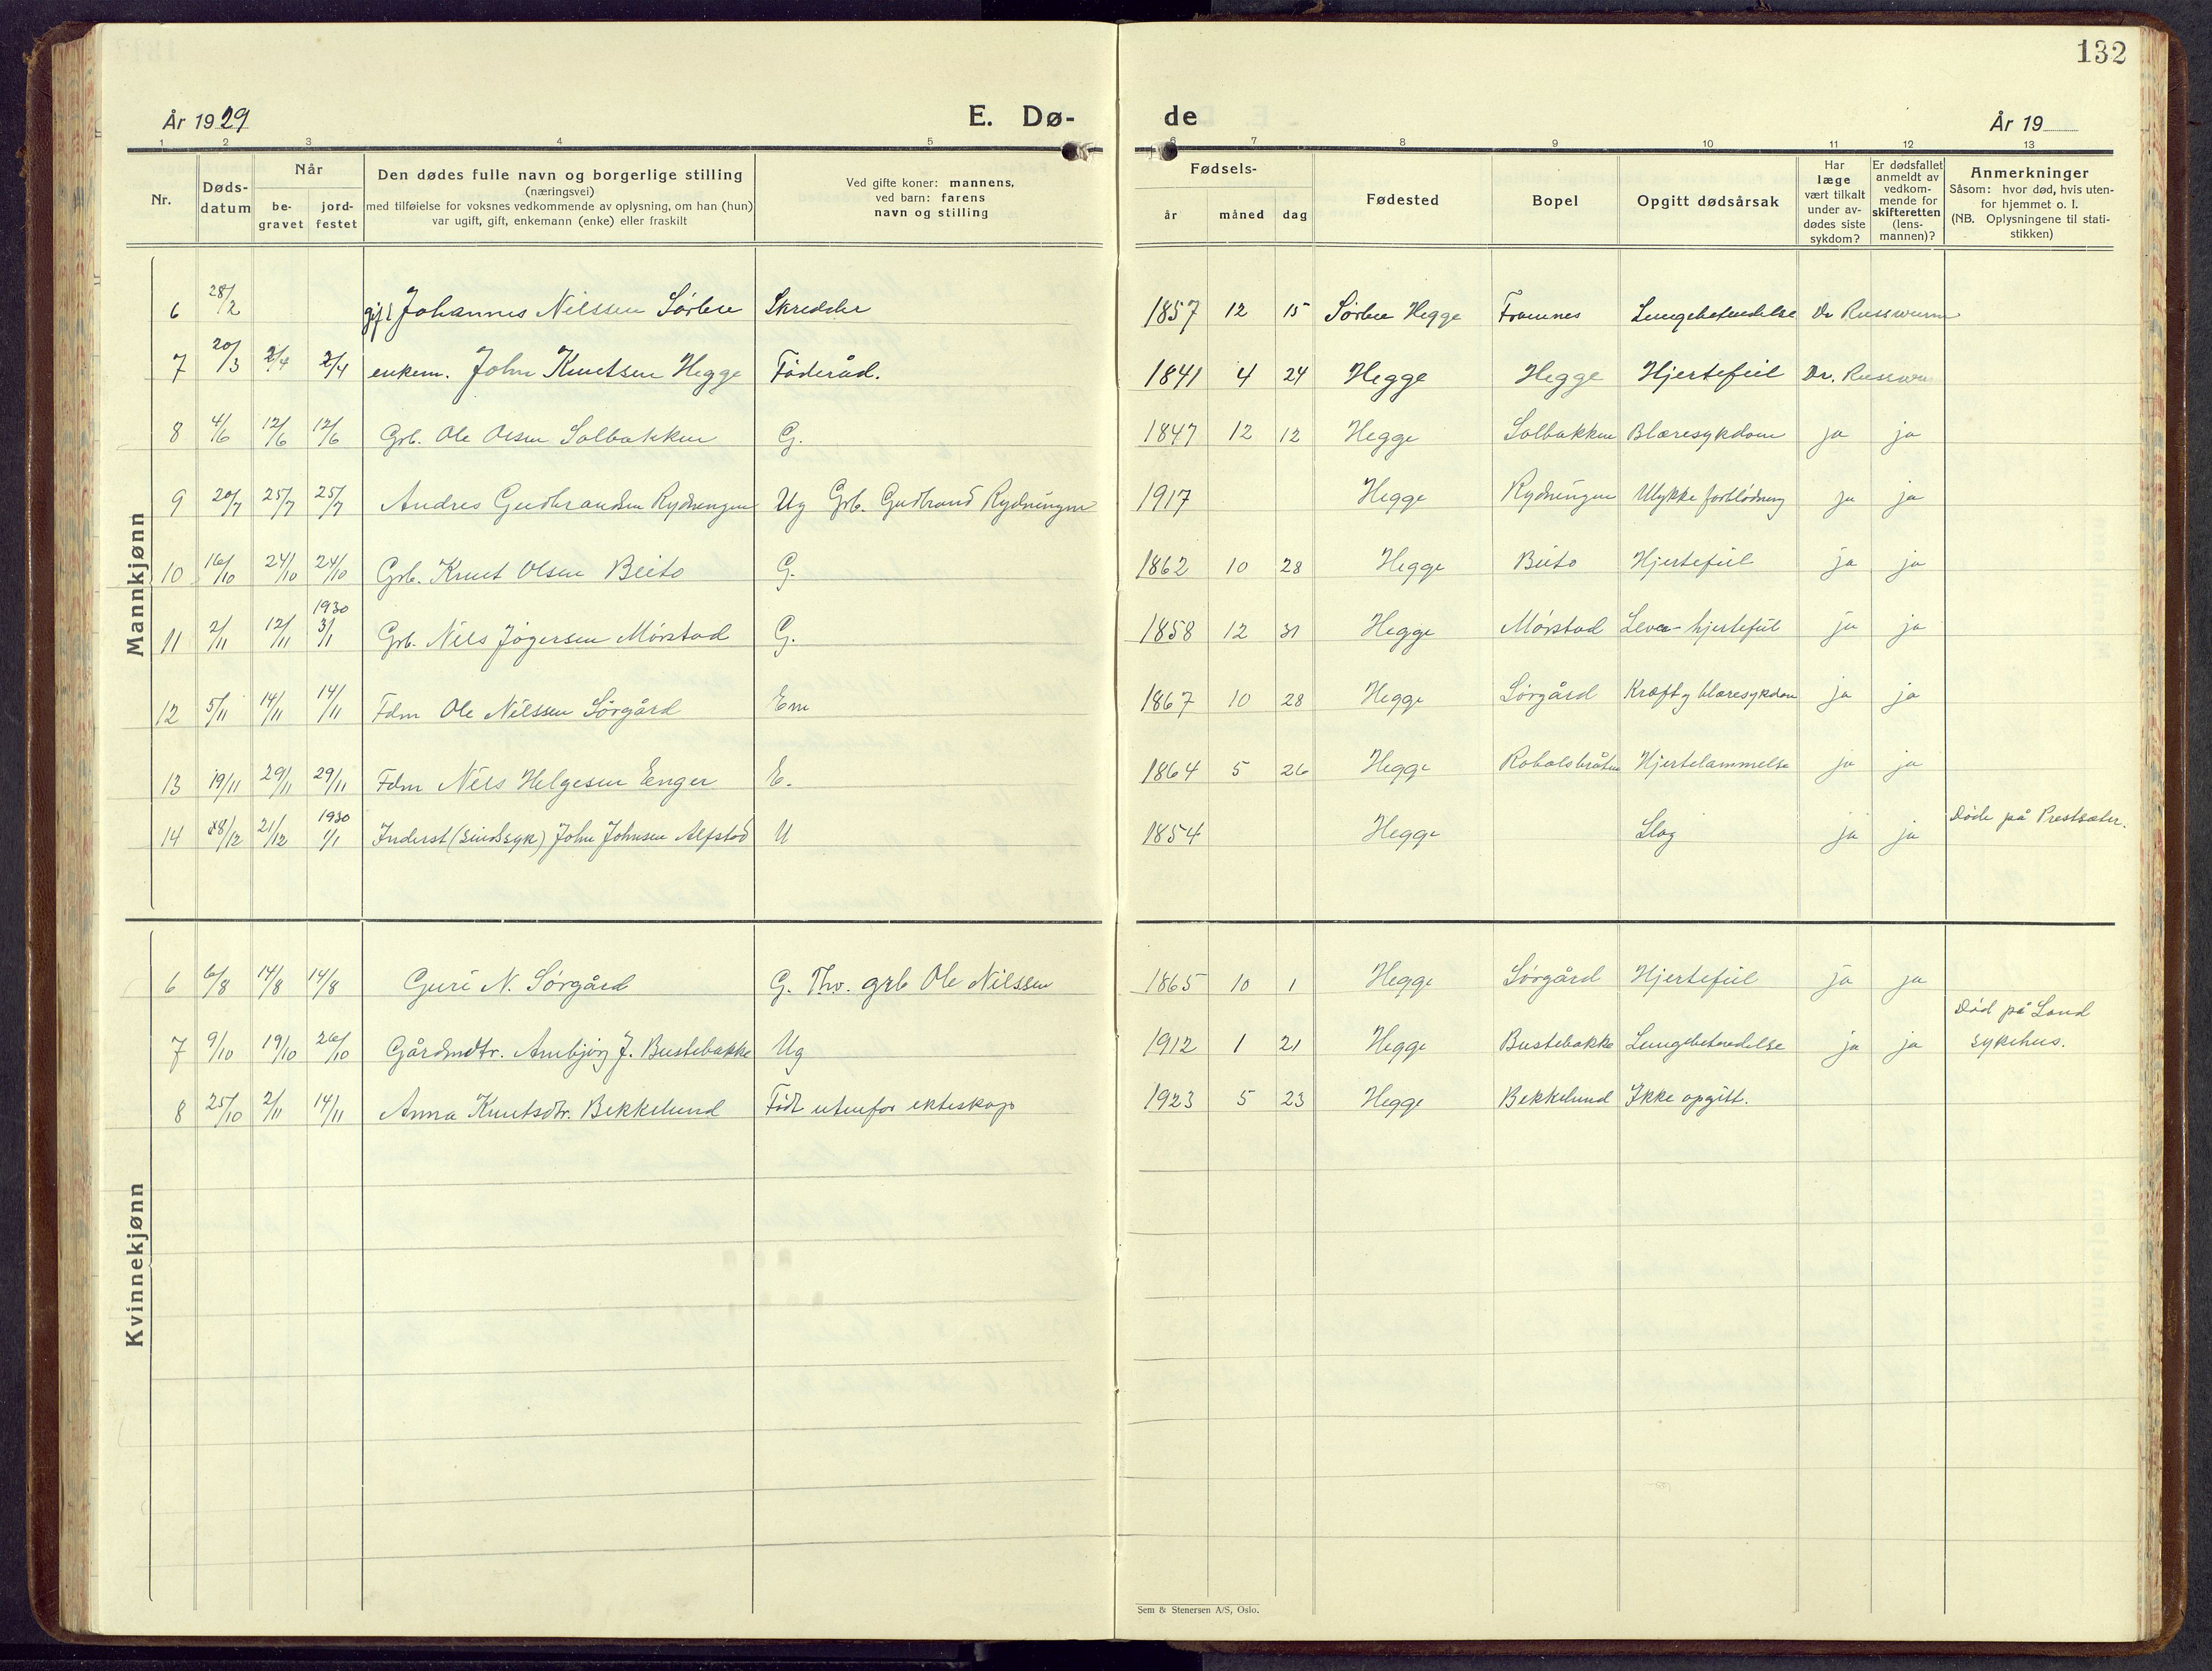 132
År 1929
E. Dø-
de
År 19
1 2 3 4 5 6 7 8 9 10 11 12 13
Nr.
Døds-
datum
Når
be-
gravet
jord-
festet
Den dødes fulle navn og borgerlige stilling
(næringsvei)
med tilføielse for voksnes vedkommende av oplysning, om han (hun)
var ugift, gift, enkemann (enke) eller fraskilt
Ved gifte koner: mannens,
ved barn: farens
navn og stilling
Fødsels-
år måned dag
Fødested
Bopel
Opgitt dødsårsak
Har
læge
vært tilkalt
under av-
dødes siste
sykdom?
Er dødsfallet
anmeldt av
vedkom-
mende for
skifteretten
(lens-
mannen)?
Anmerkninger
Såsom: hvor død, hvis uten-
for hjemmet o. l.
(NB. Oplysningene til stati-
stikken)
Mannkjønn
6 28/2 gift Johannes Nilssen Sørbu Skredder 1857 12 15 Sørbu Hegge Framnes Lungebetendelse Dr Russwurm
7 20/3 2/4 2/4 enkem. John Knutsen Hegge Føderåd. 1841 4 24 Hegge Hegge Hjertefeil Dr. Russwu
8 4/6 12/6 12/6 Grb. Ole Olsen Solbakken G. 1847 12 12 Hegge Solbakken Blæresykdom ja ja
9 20/7 25/7 25/7 Andres Gudbrandsen Rydningen Ug Grb. Gudbrand Rydningen 1917 Hegge Rydningen Ulykke forblødning ja ja
10 16/10 24/10 24/10 Grb. Knut Olsen Beito G. 1862 10 28 Hegge Beito Hjertefeil ja ja
1930
11 2/11 12/11 3/1 Grb. Nils Jøgersen Mørstad G. 1858 12 31 Hegge Mørstad Lever- hjertefeil ja ja
12 5/11 14/11 14/11 Fdm Ole Nilssen Sørgård Em 1867 10 28 Hegge Sørgård Kræft og blæresykdom ja ja
13 19/11 29/11 29/11 Fdm Nils Helgesen Enger E. 1864 5 26 Hegge Robolsbråten Hjertelammelse ja ja
1930
14 18/12 21/12 1/1 Inderst (sindssyk) John Johnsen Alfstad U 1854 Hegge Slag ja ja Døde på Prestsæter.
Kvinnekjønn
6 6/8 14/8 14/8 Guri N. Sørgård G. Thv. grb Ole Nilssen 1865 10 1 Hegge Sørgård Hjertefeil ja ja
7 9/10 19/10 26/10 Gårdmdtr. Ambjørg J. Bustebakke Ug 1912 1 21 Hegge Bustebakke Lungebetendelse ja ja Død på Land
sykehus.
8 25/10 2/11 14/11 Anna Knutsdtr. Bekkelund Født utenfor ekteskap 1923 5 23 Hegge Bekkelund Ikke opgitt.
Sem & Stenersen A/S, Oslo.